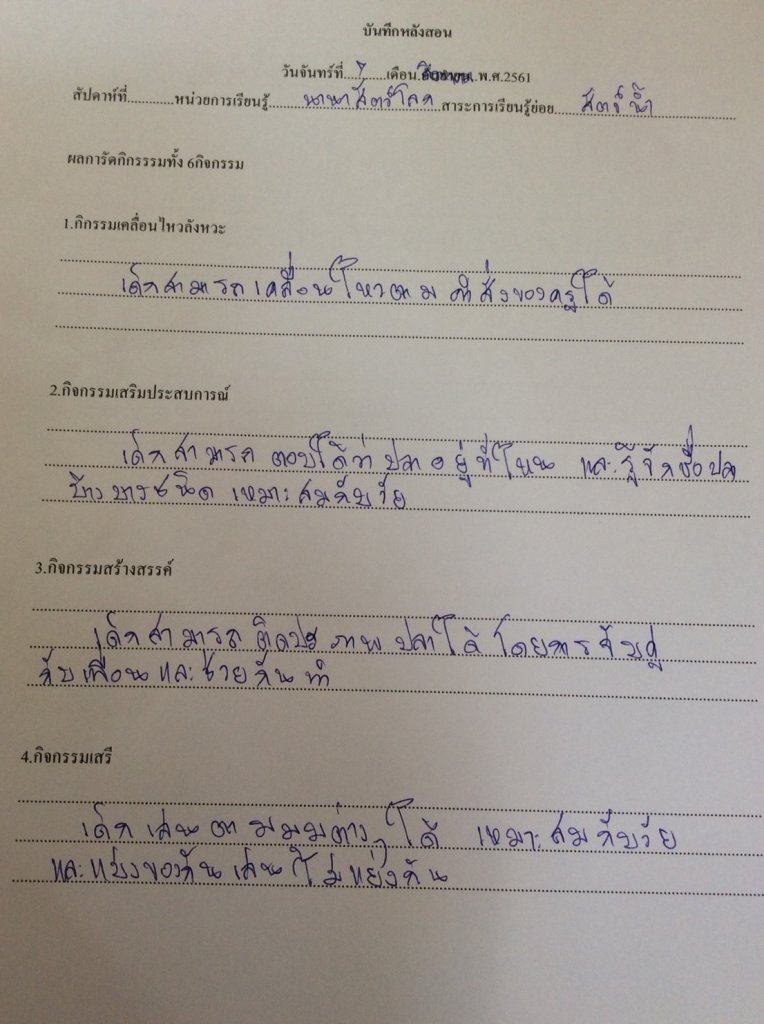 บันทึกหลังสอน
วันจันทร์ที่.......เดือน..............พ.ศ.2561
สัปดาห์ที่............หน่วยการเรียนรู้.......นานาสัตว์โลก.สาระการเรียนรู้ย่อย.....สัตว์น้ำ
ผลการัดกิกรรรมทั้ง 6กิจกรรม
1.กิกรรมเคลื่อนไหวลังหวะ
เด็กสามารถเคลื่อนไหวตาม คำสั่งของครูได้
2.กิจกรรมเสริมประสบการณ์
เด็กสามารถ ตอบได้ว่า ปลาอยู่ที่ไหน และรู้จักชื่อปลา
บ้างบางชนิด เหมาะสมกับวัย
3.กิจกรรมสร้างสรรค์
เด็กสามารถ ติดปะ ภาพ ปลาได้ โดยการจับคู่
กับเพื่อนและช่วยกันทำ
4.กิจกรรมเสรี
เด็กเล่นตามมุมต่างๆได้ เหมาะสมกับวัย
และแบ่งของกันเล่นไม่แย่งกัน